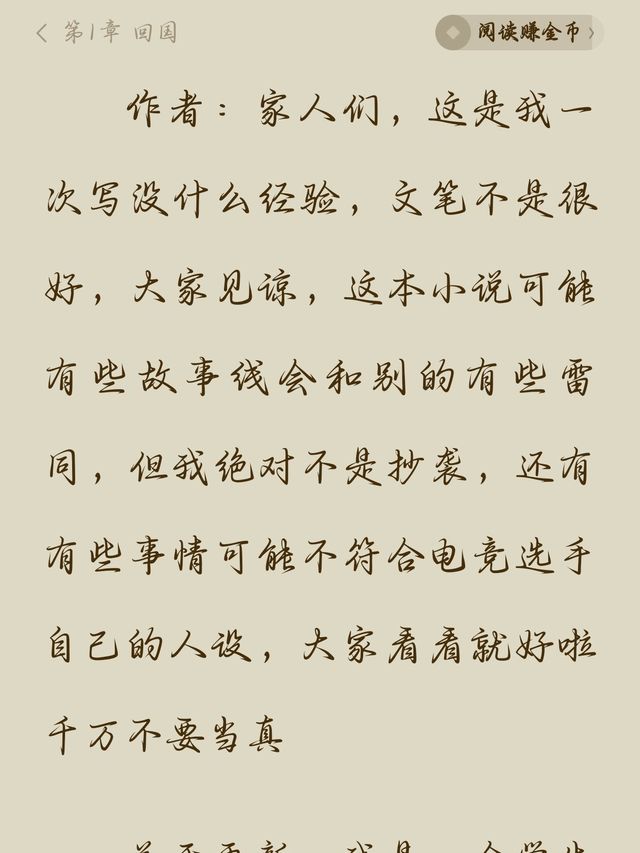 第1章 回国
阅读赚金币
作者：家人们，这是我一
次写没什么经验，文笔不是很
好，大家见谅，这本小说可能
有些故事线会和别的有些雷
同，但我绝对不是抄袭，还有
有些事情可能不符合电竞选手
自己的人设，大家看看就好啦
千万不要当真